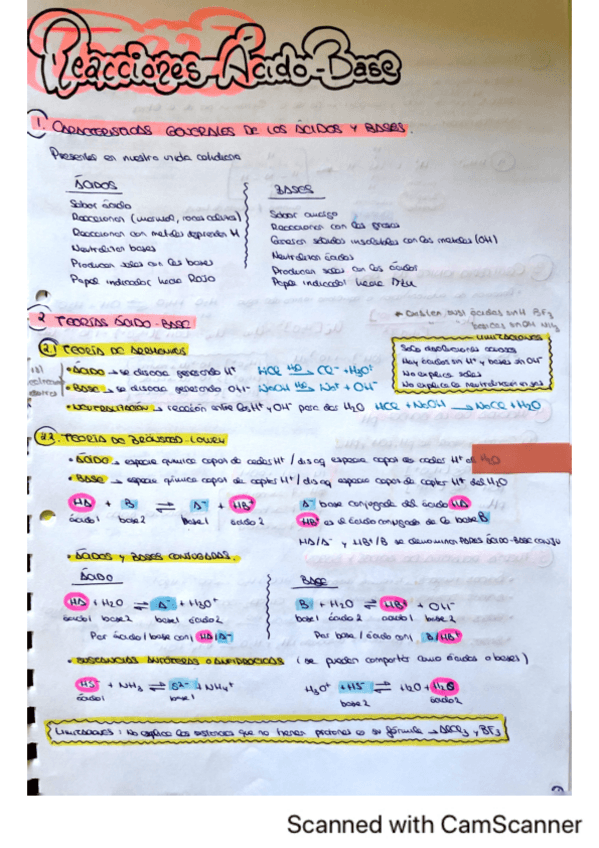 Reacciones Ácido-Base
1. CARACTERÍSTICAS GENERALES DE LOS ÁCIDOS Y BASES.
Presentes en nuestra vida cotidiana
ÁCIDOS
Sabor ácido
Reaccionan (marmol, rocas calizas)
Reaccionan con metales desprenden H
Neutralizan bases
Producen sales con las bases
Papel indicador hacia Rojo
BASES
Sabor amargo
Reaccionan con las grasas
Generan sólidos insolubles con los metales (OH)
Neutralizan ácidos
Producen sales con los ácidos
Papel indicador hacia Azul
2 TEORÍAS ÁCIDO-BASE
ácidas sin H BF3
básicas sin OH NH3
2.1 TEORÍA DE ARRHENIUS
LIMITACIONES
Solo disoluciones acuosas
Hay ácidos sin H+ y bases sin OH-
No explica sales
No explica la neutralización en gas
• ÁCIDO → se disocia generando H+ HCl H2O→ Cl- + H3O+
• BASE → se disocia generando OH- NaOH H2O→ Na+ + OH-
• NEUTRALIZACIÓN → reacción entre los H+ y OH- para dar H2O HCl + NaOH → NaCl + H2O
2.2. TEORÍA DE BRÖNSTED-LOWRY
• ÁCIDO → especie química capaz de ceder H+ / dis aq especie capaz de ceder H+ al H2O
• BASE → especie química capaz de captar H+ / dis aq especie capaz de captar H+ del H2O
HA + B ⇌ A- + HB+
ácido1 base2 base1 ácido2
A- base conjugada del ácido HA
HB+ es el ácido conjugado de la base B
HA/A- y HB+/B se denominan PARES ÁCIDO-BASE CONJU
• ÁCIDOS Y BASES CONJUGADAS.
ÁCIDO
HA + H2O ⇌ A- + H3O+
ácido1 base2 base1 ácido2
Par ácido/base conj HA/A-
BASE
B + H2O ⇌ HB+ + OH-
base1 ácido2 ácido1 base2
Par base/ácido conj B/HB+
• SUSTANCIAS ANFÓTERAS O ANFIPRÓTICAS (se pueden comportar como ácidos o bases)
HS- + NH3 ⇌ S2- + NH4+
ácido1 base1
H3O+ + HS- ⇌ H2O + H2S
base2 ácido2
LIMITACIONES: No explica las sustancias que no tienen protones en su fórmula → AlCl3 y BF3
Scanned with CamScanner